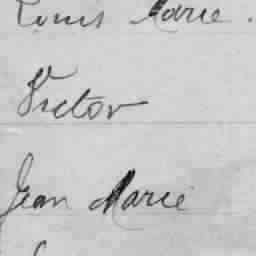 Louis Marie.
Victor
Jean Marie